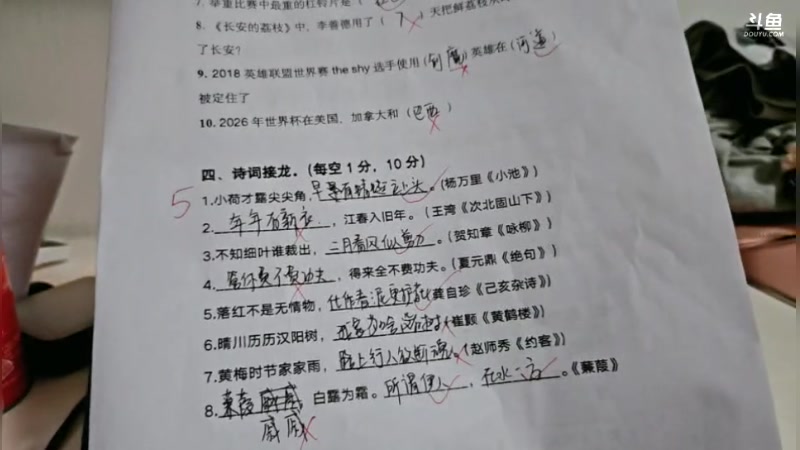 斗鱼
DOUYU.COM
7. 举重比赛中最重的杠铃片是（
8. 《长安的荔枝》中，李善德用了（7）天把鲜荔枝
了长安？
9. 2018 英雄联盟世界赛 the shy 选手使用（剑魔）英雄在（河道）
被定住了
10. 2026 年世界杯在美国、加拿大和（巴西）
四、诗词接龙。（每空 1 分，10 分）
5
1.小荷才露尖尖角，早有蜻蜓立上头。（杨万里《小池》）
2. 年年有新衣，江春入旧年。（王湾《次北固山下》）
3.不知细叶谁裁出，二月春风似剪刀。（贺知章《咏柳》）
4. 费功夫，得来全不费功夫。（夏元鼎《绝句》）
5.落红不是无情物，化作春泥更护花（龚自珍《己亥杂诗》）
6.晴川历历汉阳树，（崔颢《黄鹤楼》）
7.黄梅时节家家雨，路上行人欲断魂。（赵师秀《约客》）
8. 白露为霜。所谓伊人，在水一方。《蒹葭》